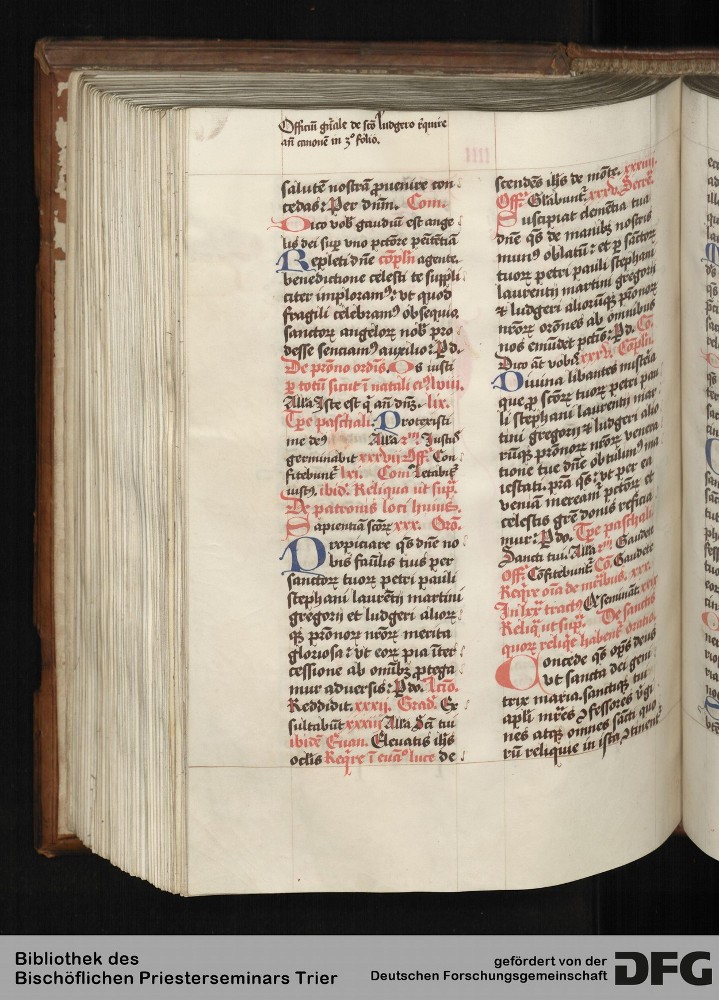 Officiū gnāle de scō ludgero reqͥre
añ canonē in 3º folio.
IIII
salutē nostrā ꝓuenire con
cedas: Per dnm̄. Com.
Dico vob gaudiū est ange
lis dei sup vno pctōre pn̄itētiā
Repleti dn̄e cōpln̄ agente.
benedictione celesti te suppli
citer imploramꝰ: vt quod
fragili celebramꝰ obsequio.
sanctoꝝ angeloꝝ nob pro
desse senciamꝰ auxilio: Pd.
De ꝓrōno ordīs. Os iusti
ꝑ totū sicut ī natali eiꝰ lviii.
Alla Iste est q̄ añ dn̄. lix.
Tꝑe paschali. Protexisti
me deꝰ Alla Iustꝰ
germinabit xxxvii Off. Con
fitebunt lxi. Com letabit
iustꝰ. ibid. Reliqua ut supͣ.
De patronis loci huius.
Sapientiā scōꝝ xxx. Orō.
Propiciare qs dn̄e no
bis faml̄is tuis per
sanctoꝝ tuoꝝ petri pauli
stephani laurētij martini
gregorij et ludgeri alioꝝ
qꝫ ꝓronoꝝ nr̄oꝝ merita
gloriosa: vt eoꝝ pia īter
cessione ab omībꝫ ꝓtega
mur aduersis: P do. Lcīo.
Reddidit. xxxii. Grad. Ex
sultabūt xxxiii Alla Scī tui
ibidē Euan. Eleuatis ih̄s
oclis Reqͥre ī euāº luce de
scendēs ih̄s de mōte. xxxiiii.
Off. Glabunt xxxv. Secrē.
Suscipiat clemētia tua
dn̄e qs de manibꝫ nostris
munꝰ oblatū: et ꝑ sanctoꝝ
tuoꝝ petri pauli stephani
laurentij martini gregorij
⁊ ludgeri alioruqꝫ ꝓronoꝝ
nr̄oꝝ orōnes ab omnibus
nos emūdet pctīs: P d. Cō.
Dico āt vobis xxxv. Cōpln̄.
Diuina libantes mistēia
que ꝓ scōꝝ tuoꝝ petri pau
li stephani laurentij mar
tini gregorij ⁊ ludgeri alio
rūqꝫ ꝓronoꝝ nr̄oꝝ venera
tione tue dn̄e obtulimꝰ ma
iestati. prā qs: vt per ea
veniā mereami pctōꝝ et
celestis grē donis reficia
mur: P do. Tꝑe paschali
Sancti tui. Alla Gaudete
Off. Cōfitebunt Cō. Gaudete
Reqͥre oīa de mr̄ibus. xxx.
In lxx tractꝰ Qⁱ semināt. xxx
Reliqͣ ut supͣ. De sanctis
quoꝝ reliqͥe habent oratio.
Concede qs op̄s deus
vt sancta dei geni
trix maria. sanctiqꝫ tui
apl̄i mr̄es ꝯfessores vͥgi
nes atqꝫ omnes sancti quo
rū reliquie in ista ꝯtinent
Bibliothek des
Bischöflichen Priesterseminars Trier
gefördert von der
Deutschen Forschungsgemeinschaft
DFG